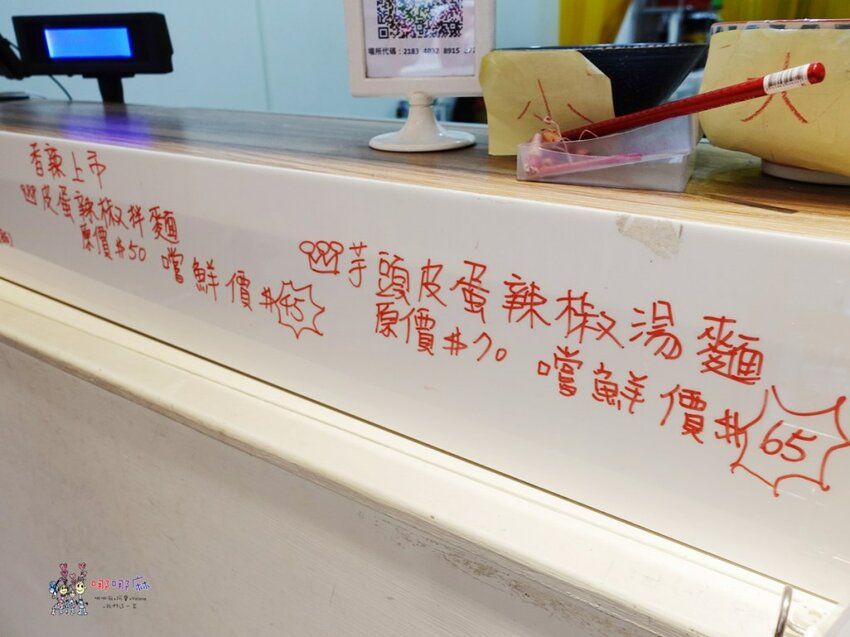 場所代碼：2183 4032 8915
小
大
香辣上市
皮蛋辣椒拌麵
原價$50 嚐鮮價$45
芋頭皮蛋辣椒湯麵
原價$70 嚐鮮價$65
哪哪麻